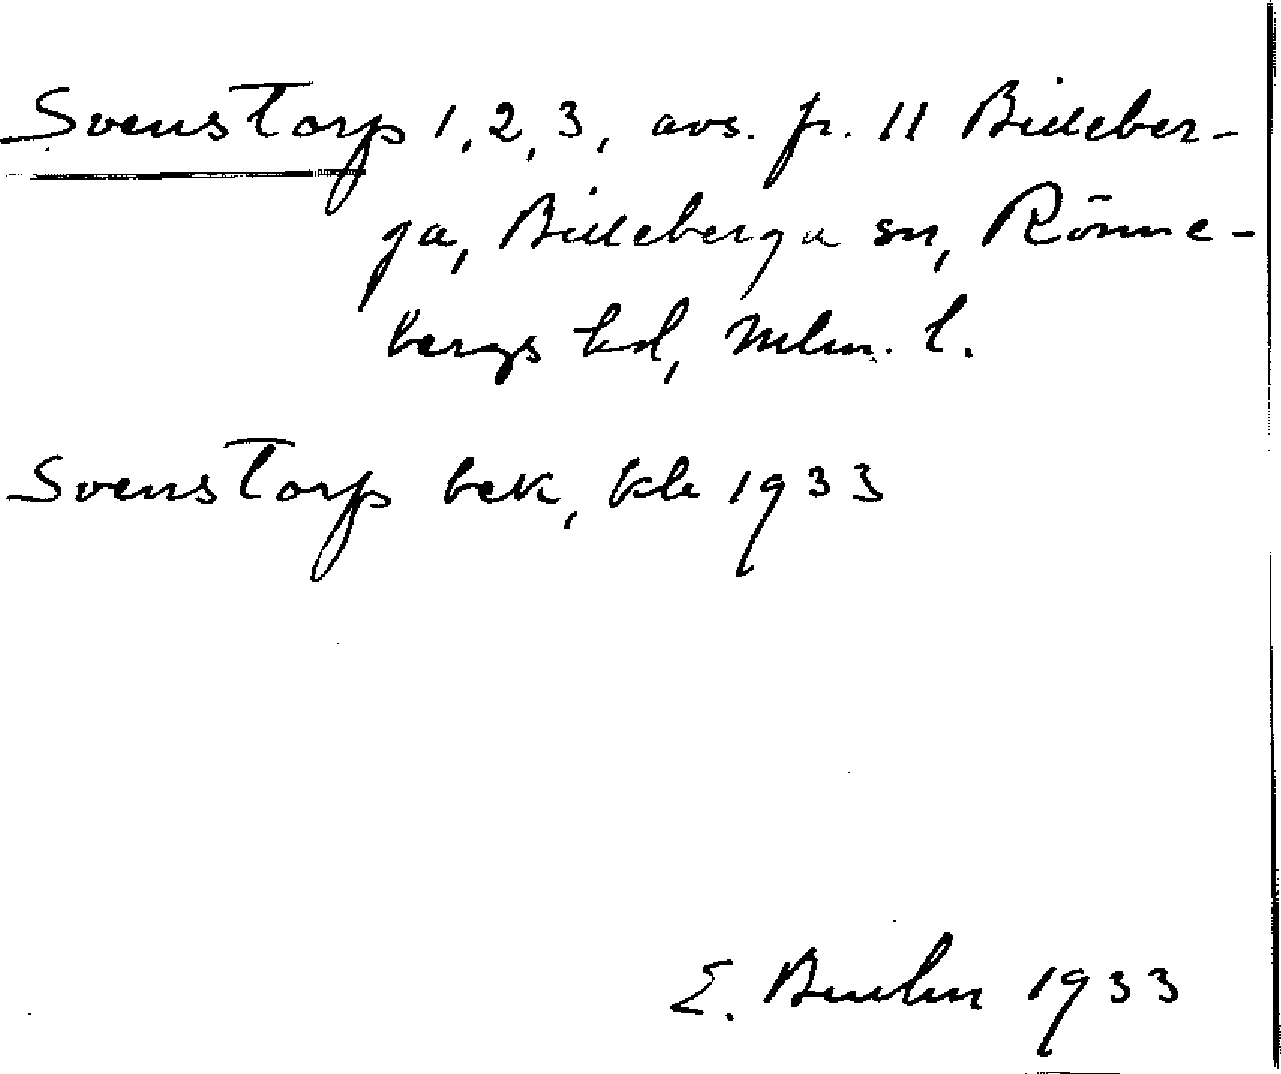 Svenstorp 1,2,3, avs. fr. 11 Billeber-
ga, Billeberga sn, Rönne-
bergs hd, Mlm. l.
Svenstorp bek, kb 1933
E. 1933